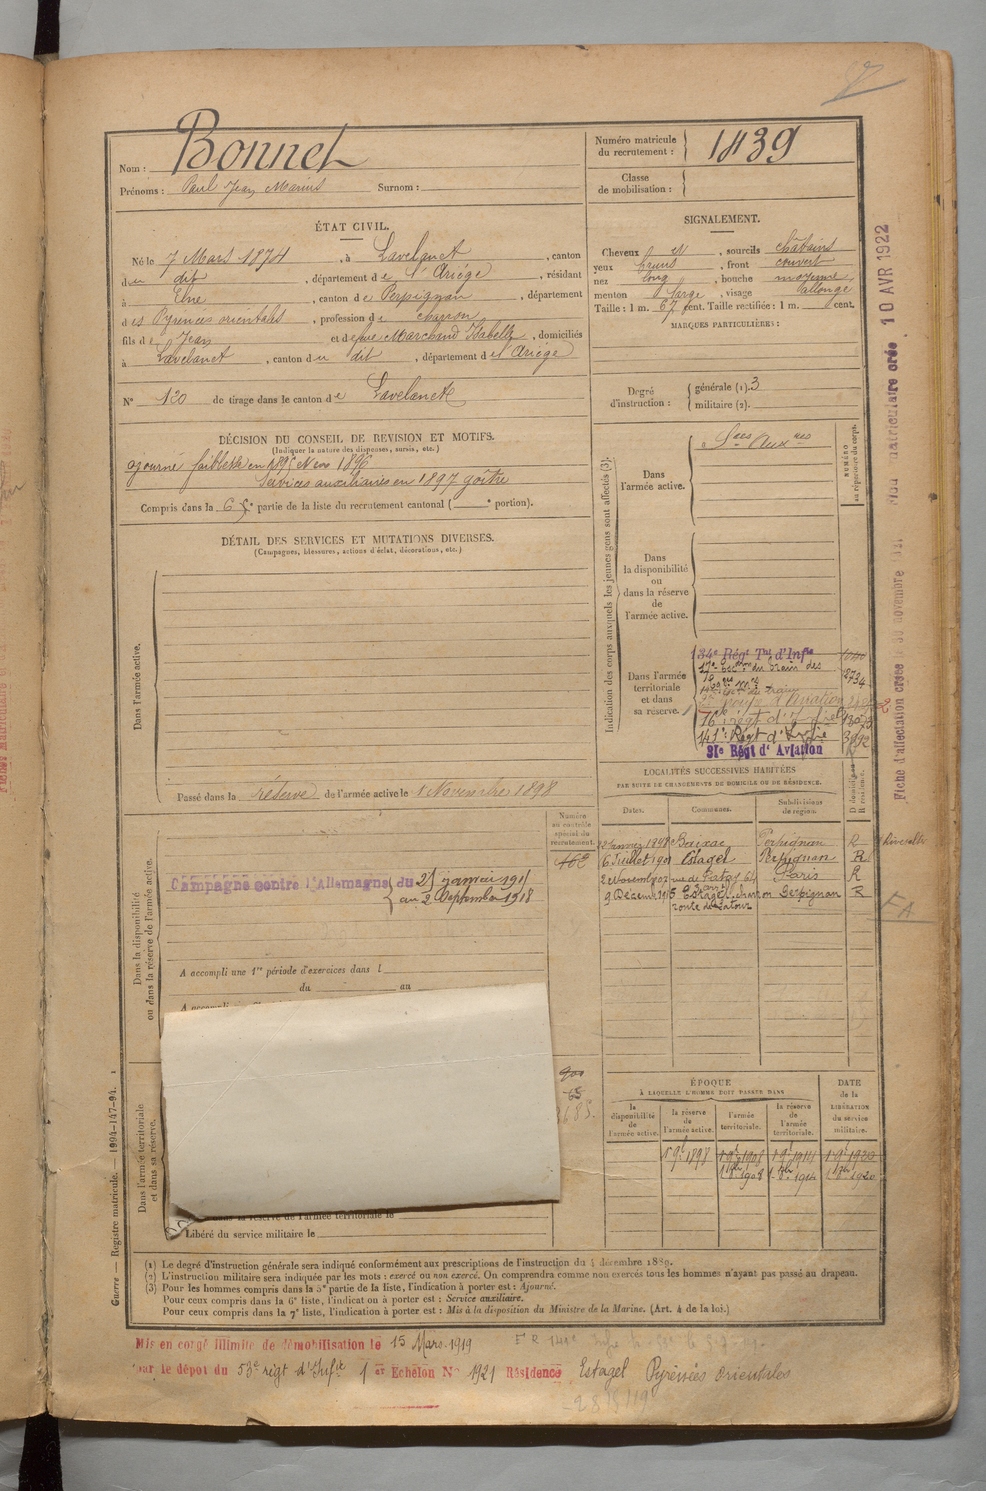 Nom : Bonnet
Prénoms : Paul Jean Marius Surnom :
Numéro matricule du recrutement : 1839
Classe de mobilisation :
ÉTAT CIVIL.
Né le 7 Mars 1874, à Lavelanet, canton
du dit, département de l'Ariége, résidant
à Elne, canton de Perpignan, département
des Pyrénées orientales, profession de charron
fils de Jean et de feue Marchand Isabelle, domiciliés
à Lavelanet, canton du dit, département de l'Ariège
N° 120 de tirage dans le canton de Lavelanet
SIGNALEMENT.
Cheveux et, sourcils châtains
yeux bruns, front couvert
nez long, bouche moyenne
menton large, visage allongé
Taille : 1 m. 67 cent. Taille rectifiée : 1 m. cent.
MARQUES PARTICULIÈRES :
Degré d'instruction : générale (1). 3
militaire (2).
DÉCISION DU CONSEIL DE REVISION ET MOTIFS.
(Indiquer la nature des dispenses, sursis, etc.)
ajourné faiblesse en 1895 et en 1896
Services auxiliaires en 1897 goître
Compris dans la 6e partie de la liste du recrutement cantonal ( e portion).
DÉTAIL DES SERVICES ET MUTATIONS DIVERSES.
(Campagnes, blessures, actions d'éclat, décorations, etc.)
Dans l'armée active.
Passé dans la réserve de l'armée active le 1 Novembre 1898
Indication des corps auxquels les jeunes gens sont affectés (3).
NUMÉRO au répertoire du corps.
Dans l'armée active.
Sces Auxres
Dans la disponibilité ou dans la réserve de l'armée active.
Dans l'armée territoriale et dans sa réserve.
134e Régt Tal d'Infie
du train des
2734
d'Aviation
16e régt d'
141e Régt d'Infie
31e Régt d'Aviation
LOCALITÉS SUCCESSIVES HABITÉES
PAR SUITE DE CHANGEMENTS DE DOMICILE OU DE RÉSIDENCE.
Dates. Communes. Subdivisions de région. D domicile R résidence.
Janvier 1898 Baixas Perpignan R Rivesaltes
6 Juillet 1901 Estagel Perpignan R
2 Novembre 07 rue de Patay 64 Paris R
9 Décem. 1915 Estagel Perpignan R
Numéro au contrôle spécial du recrutement.
Dans la disponibilité ou dans la réserve de l'armée active.
Campagne contre l'Allemagne du 25 janvier 1915
au 2 Septembre 1918
A accompli une 1re période d'exercices dans l
du au
Dans l'armée territoriale et dans sa réserve.
dans la réserve de l'armée territoriale le
Libéré du service militaire le
ÉPOQUE
À LAQUELLE L'HOMME DOIT PASSER DANS
la disponibilité de l'armée active.
la réserve de l'armée active.
l'armée territoriale.
la réserve de l'armée territoriale.
DATE de la LIBÉRATION du service militaire.
1 9bre 1898 1 9bre 1908 1 9bre 1914 1 9bre 1920
(1) Le degré d'instruction générale sera indiqué conformément aux prescriptions de l'instruction du 4 décembre 1889.
(2) L'instruction militaire sera indiquée par les mots : exercé ou non exercé. On comprendra comme non exercés tous les hommes n'ayant pas passé au drapeau.
(3) Pour les hommes compris dans la 5e partie de la liste, l'indication à porter est : Ajourné.
Pour ceux compris dans la 6e liste, l'indication à porter est : Service auxiliaire.
Pour ceux compris dans la 7e liste, l'indication à porter est : Mis à la disposition du Ministre de la Marine. (Art. 4 de la loi.)
Mis en congé illimité de démobilisation le 15 Mars 1919
par le dépot du 53e régt d'Infie 1er Echelon N° 1921 Résidence Estagel Pyrénées orientales
Guerre — Registre matricule. — 1994-147-94.
Fiche d'affectation créée le 30 novembre
matriculaire crée 10 AVR 1922
FA